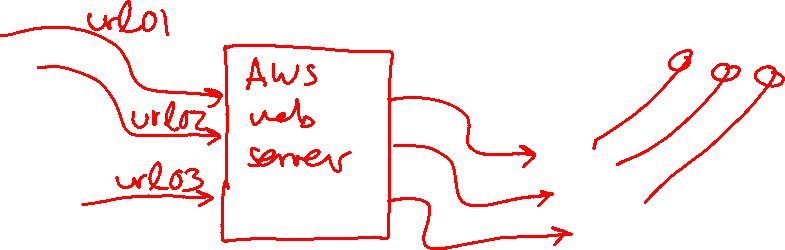 url01
url02
url03
AWS
web
server